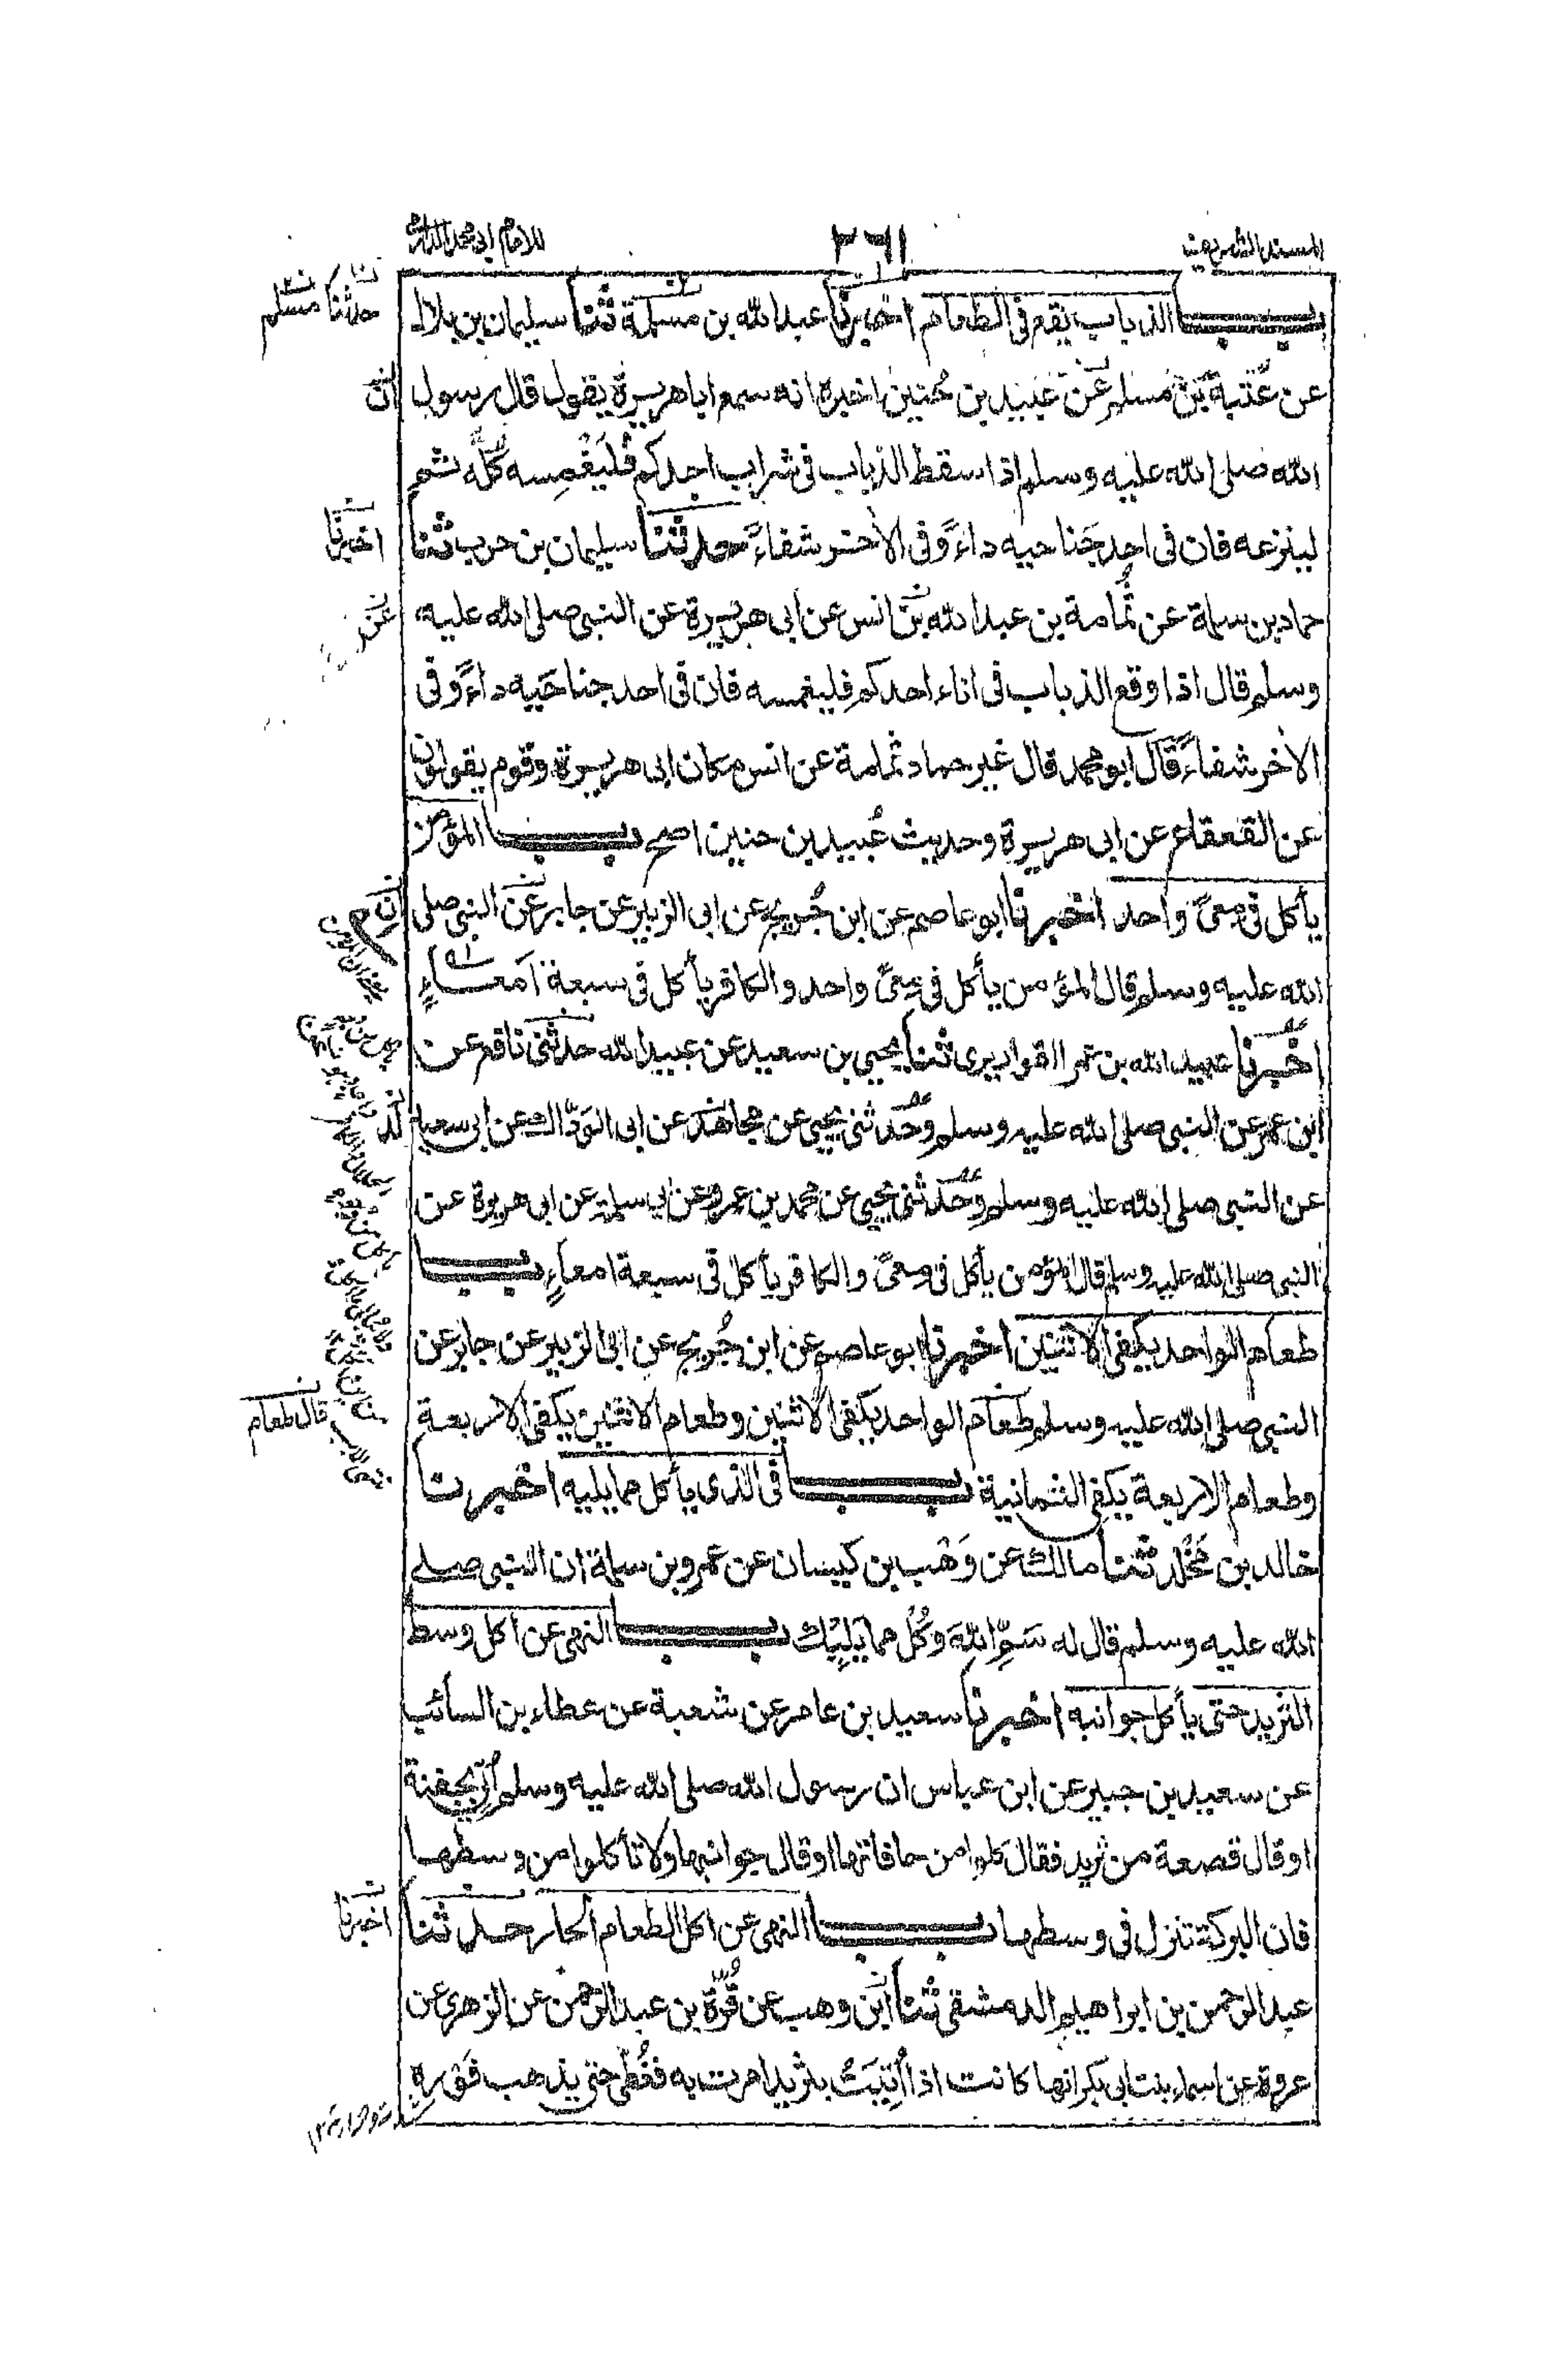 المسند الشريف
٢٦١
للامام ابي محمد الدارمي
باب الذباب يقع في الطعام اخبرنا عبد الله بن مسلمة ثنا سليمان بن بلال
حدثنا مسلم
عن عتبة بن مسلم عن عبيد بن حُنين اخبره انه سمع ابا هريرة يقول قال رسول
ان
الله صلى الله عليه وسلم اذا سقط الذباب في شراب احدكم فَليَغْمِسه كُلَّه ثم
لينزعه فان في احد جَناحيه داءً وفي الاٰخر شفاءً حدثنا سليمان بن حرب ثنا
اخبرنا
حماد بن سلمة عن ثُمامة بن عبد الله بن انس عن ابي هريرة عن النبي صلى الله عليه
عن
وسلم قال اذا وقع الذباب في اناء احدكم فليغمسه فان في احد جناحَيه داءً وفي
الاٰخر شفاءً قال ابو محمد قال غير حماد ثمامة عن انس مكان ابي هريرة وقوم يقولون
عن القعقاع عن ابي هريرة وحديث عُبيد بن حنين اصح باب المؤمن
يأكل في معىً واحد اخبرنا ابو عاصم عن ابن جُريج عن ابي الزبير عن جابر عن النبي صلى
ان
الله عليه وسلم قال المؤمن يأكل في مِعىً واحد والكافر يأكل في سبعة اَمعاءٍ
اخبرنا عبيد الله بن عمر القواريري ثنا يحيى بن سعيد عن عبيد الله حدثني نافع عن
ابن عمر عن النبي صلى الله عليه وسلم وحَدثني يحيى عن مجاهد عن ابي الوَدّاك عن ابي سعيد
عن النبي صلى الله عليه وسلم وحَدثني يحيى عن محمد بن عمرو عن ابي سلمة عن ابي هريرة عن
النبي صلى الله عليه وسلم قال المؤمن يأكل في معىً والكافر يأكل في سبعة امعاءٍ باب
طعام الواحد يكفي الاثنين اخبرنا ابو عاصم عن ابن جُريج عن ابي الزبير عن جابر عن
النبي صلى الله عليه وسلم طعام الواحد يكفي الاثنين وطعام الاثنين يكفي الاربعة
قال طعام
وطعام الاربعة يكفي الثمانية باب في الذي يأكل مما يليه اخبرنا
خالد بن مَخْلَد ثنا مالك عن وَهْب بن كيسان عن عمرو بن سلمة ان النبي صلى
الله عليه وسلم قال له سَمِّ اللهَ وَكُل مما يَلِيْك باب النهي عن اكل وسط
الثريد حتى يأكل جوانبه اخبرنا سعيد بن عامر عن شعبة عن عطاء بن السائب
عن سعيد بن جبير عن ابن عباس ان رسول الله صلى الله عليه وسلم اُتِيَ بجفنة
او قال قصعة من ثريد فقال كلوا من حافاتها او قال جوانبها ولا تأكلوا من وسطها
فان البركة تنزل في وسطها باب النهي عن اكل الطعام الحار حدثنا
اخبرنا
عبد الرحمن بن ابراهيم الدمشقي ثنا ابن وهب عن قُرّة بن عبد الرحمن عن الزهري عن
عروة عن اسماء بنت ابي بكر انها كانت اذا اُتِيَتْ بثريد امرت به فغُطي حتى يذهب فَوْره